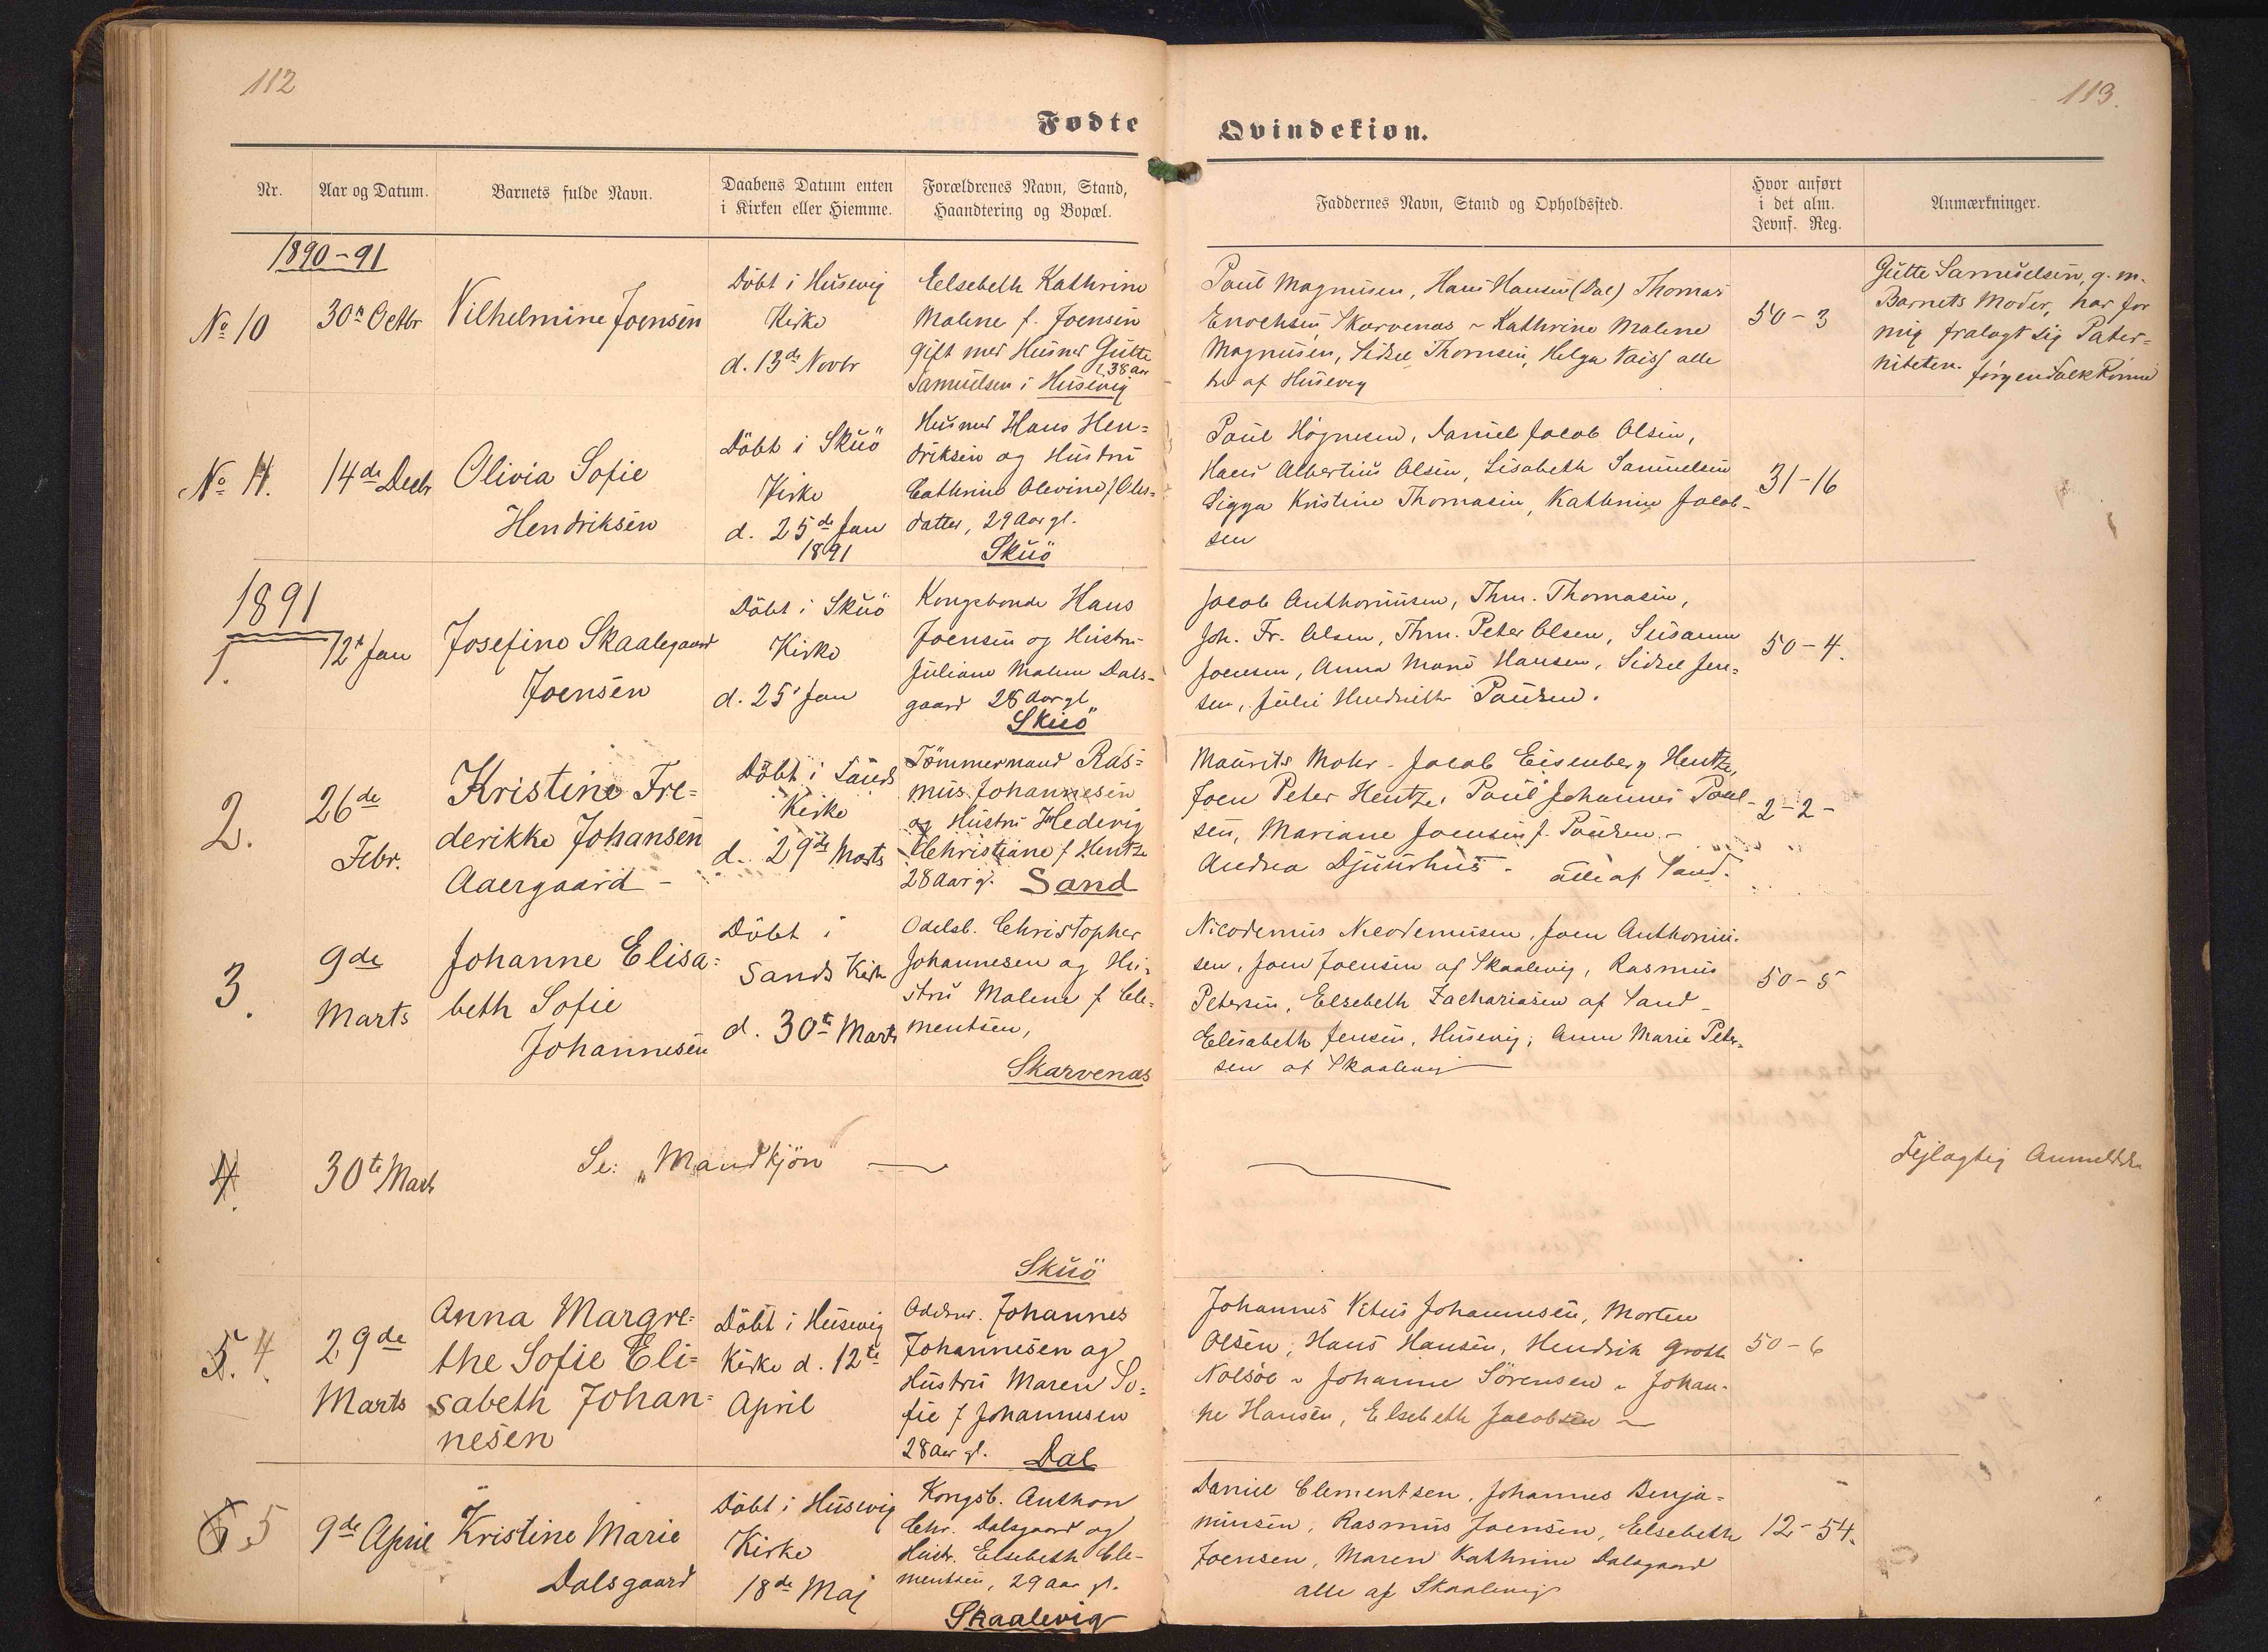 112
113.
Fødte
Qvindekiøn.
Nr.
Aar og Datum.
Barnets fulde Navn.
Daabens Datum enten
i Kirken eller Hiemme.
Forældrenes Navn, Stand,
Haandtering og Bopæl.
Faddernes Navn, Stand og Opholdssted.
Hvor anført
i det alm.
Jevnf. Reg.
Anmærkninger.
1890-91
No 10
30te Octbr
Vilhelmine Joensen
Döbt i Husevig
Kirke
d. 13de Novbr
Elsebeth Kathrine
Malene f. Joensen
gift med Husmd Gutte
38 aar
Samuelsen i Husevig
Poul Magnusen, Hans Hansen (Dal) Thomas
Enochsen, Skarvenæs - Kathrine Malene
Magnusen, Sidsel Thomsen, Helga alle
tre af Husevig
50-3
Gutte Samuelsen, g. m.
Barnets Moder, har for
mig fralagt sig Pater=
niteten. Jørgen Falk Rønne
No 11.
14de Decbr
Olivia Sofie
Hendriksen
Döbt i Skuö
Kirke
d. 25de Jan
1891
Husmd Hans Hen=
driksen og Hustru
Cathrine Olevine f Ols=
datter, 29 Aar gl.
Skuö
Poul Högnesen, Daniel Jacob Olsen,
Hans Albertius Olsen, Lisabeth Samuelsen
Sigga Kristine Thomasen, Kathrine Jacob-
sen
31-16
1891
1.
12te Jan
Josefine Skaalegaard
Joensen
Döbt i Skuö
Kirke
d. 25' Jan
Kongsbonde Hans
Joensen og Hustru
Juliane Malene Dals-
gaard 28 Aar gl
Skuö
Jacob Anthoniusen, Thm. Thomasen,
Joh. Fr. Olsen, Thm. Peter Olsen, Susanne
Joensen, Anna Marie Hansen, Sidsel Jen=
sen, Julie Hendrikke Poulsen.
50-4.
2.
26de
Febr.
Kristine Fre=
derikke Johansen
Aaergaard -
Döbt i Sands
Kirke
d. 29de Marts
Tömmermand Ras=
mus Johannesen
og Hustru Hedevig
Christiane f Hentze
28 Aar g. Sand
Maurits Mohr - Jacob Eisenberg Hentze,
Joen Peter Hentze, Poul Johannes Poul-
sen, Mariane Joensen f. Poulsen -
Andrea Djuurhus - alle af Sand.
2-2-
3.
9de
Marts
Johanne Elisa=
beth Sofie
Johannesen
Döbt i
Sands Kirke
d. 30te Marts
Odelsb. Christopher
Johannesen og Hu=
stru Malene f Cle=
mentsen,
Skarvenæs
Nicodemus Nicodemusen, Joen Anthoniu-
sen, Joen Joensen af Skaalevig, Rasmus
Petersen, Elsebeth Zachariasen af Sand -
Elisabeth Jensen, Husevig; Anne Marie Peter=
sen af Skaalevig
50-5
4.
30te Marts
Se: „Mandkjön"
Fejlagtig Anmeldelse
Skuö
5. 4.
29de
Marts
Anna Margre=
the Sofie Eli=
sabeth Johan=
nesen
Döbt i Husevig
Kirke d. 12te
April
Johannes
Johannesen og
Hustru Maren So=
fie f Johannesen
28 Aar gl. Dal
Johannes Vitus Johannesen, Morten
Olsen, Hans Hansen, Hendrik Grothe
Nolsöe - Johanne Sörensen - Johan-
ne Hansen, Elsebeth Jacobsen -
50-6
6. 5
9de April
Kristine Marie
Dalsgaard
Döbt i Husevig
Kirke
18de Maj
Kongsb. Anthon
Chr. Dalsgaard og
Hustr. Elsebeth Cle-
mentsen, 29 aar gl.
Skaalevig
Daniel Clementsen, Johannes Benja=
minsen, Rasmus Joensen, Elsebeth
Joensen, Maren Kathrine Dalsgaard
alle af Skaalevig
12-54.